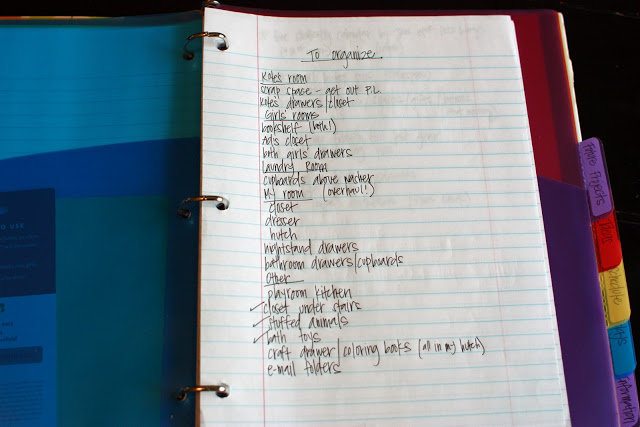 To organize
Kole's room
scrap space - get out P.L.
Kole's drawers/closet
Girls' rooms
bookshelf (both!)
Ad's closet
both girls' drawers
Laundry Room
cupboards above washer
My room (overhaul!)
closet
dresser
hutch
nightstand drawers
bathroom drawers/cupboards
Other
playroom kitchen
✓ closet under stairs
✓ stuffed animals
✓ bath toys
craft drawer/coloring books (all in my hutch)
e-mail folders
Home Projects